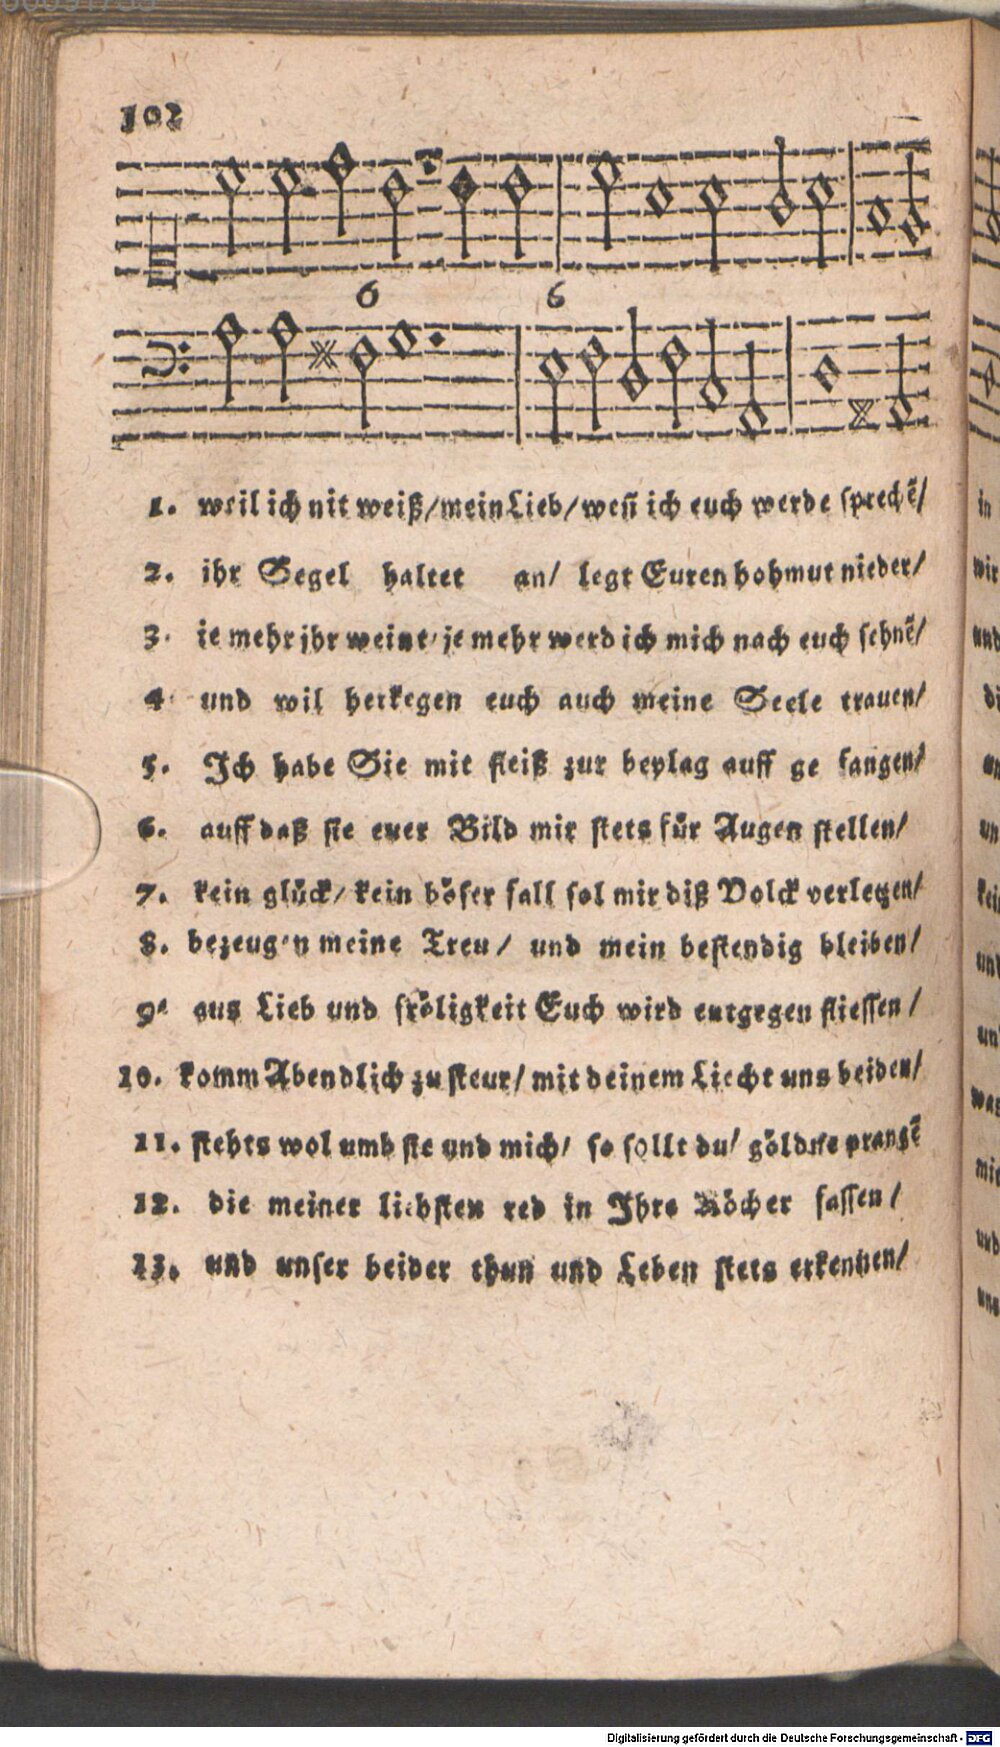 102
6 6
1. weil ich nit weiß/mein Lieb/weñ ich euch werde sprechẽ/
2. ihr Segel haltet an/ legt Euren hohmut nieder/
3. ie mehr jhr weint/je mehr werd ich mich nach euch sehnẽ/
4. und wil herkegen euch auch meine Seele trauen/
5. Ich habe Sie mit fleiß zur beylag auff ge fangen/
6. auff daß sie euer Bild mir stets für Augen stellen/
7. kein glück/ kein böser fall sol mir diß Volck verletzen/
8. bezeugen meine Treu/ und mein bestendig bleiben/
9. aus Lieb und fröligkeit Euch wird entgegen fliessen/
10. komm Abendlich zu steur/ mit deinem Liecht uns beiden/
11. stehts wol umb sie und mich/ so sollt du/ göldne prangẽ
12. die meiner liebsten red in Ihre Köcher fassen/
13. und unser beider thun und Leben stets erkennen/
in
wir
und
di
un
kein
und
un
was
mit
und
uns
Digitalisierung gefördert durch die Deutsche Forschungsgemeinschaft - DFG